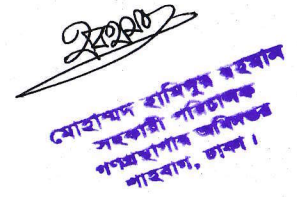 মোহাম্মদ হামিদুর রহমান
সহকারী পরিচালক
গণগ্রন্থাগার অধিদপ্তর
শাহবাগ, ঢাকা।